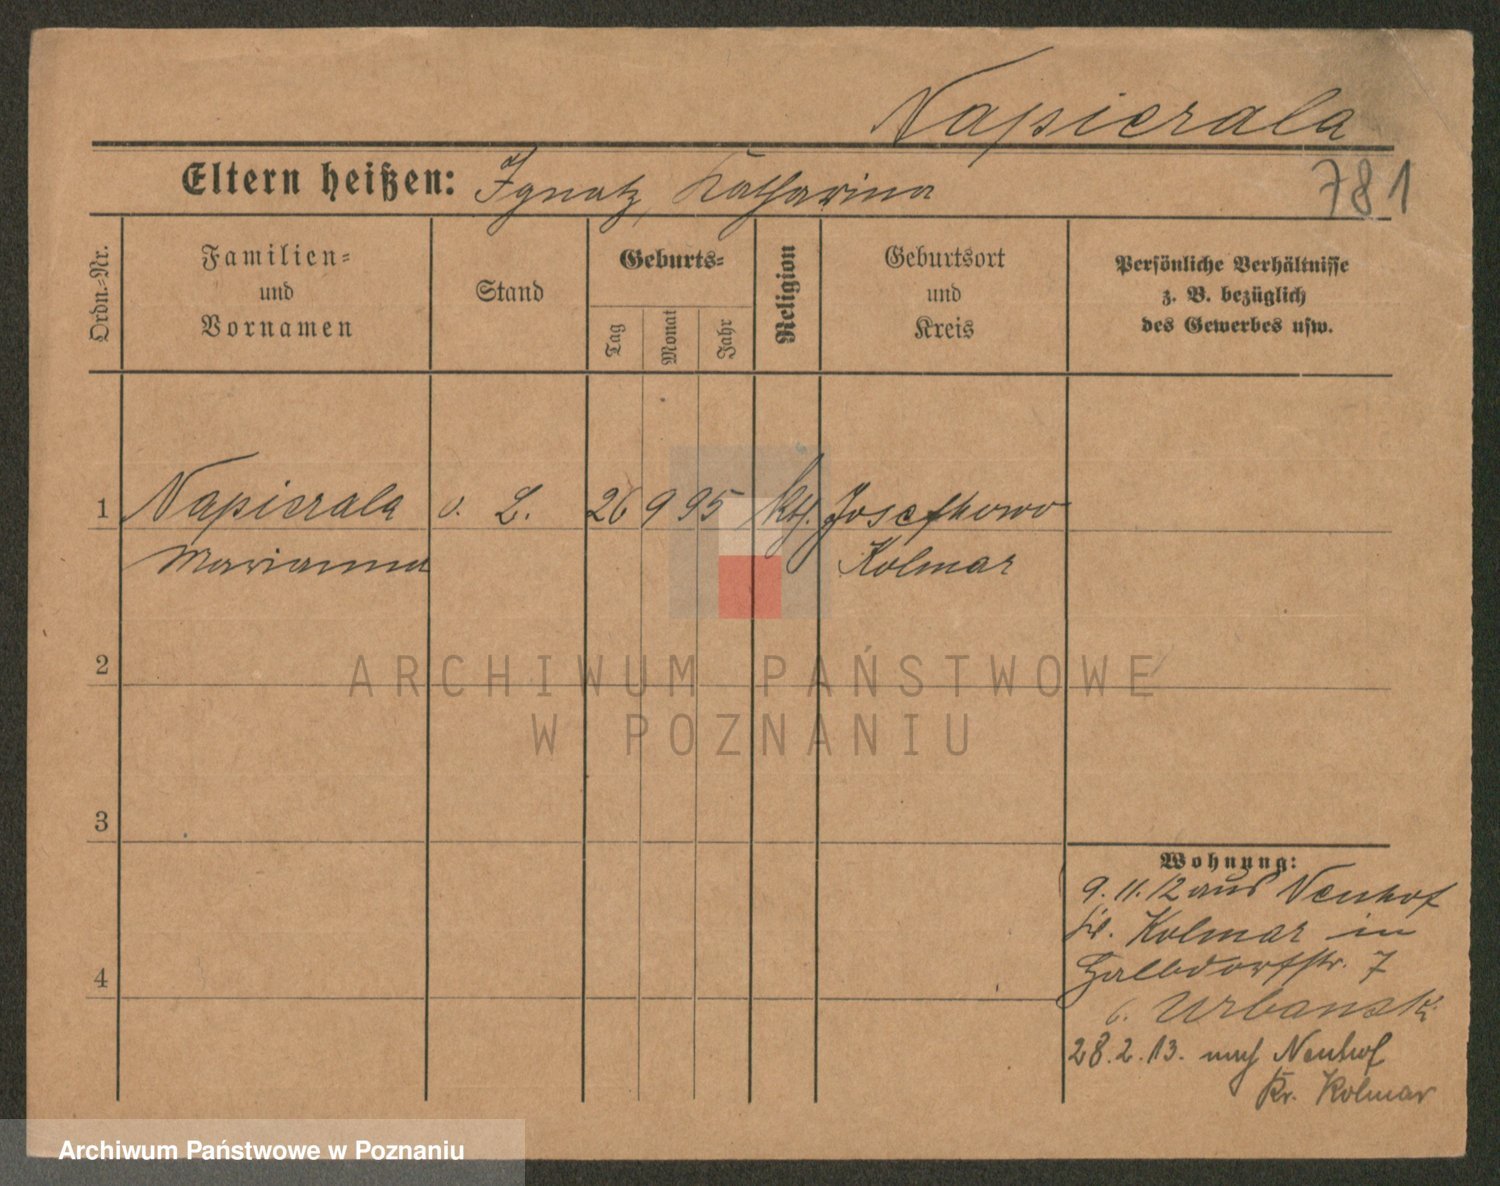 Napierala
Eltern heißen: Ignatz, Katharina
781
Ordn.-Nr.
Familien-
und
Vornamen
Stand
Geburts-
Tag
Monat
Jahr
Religion
Geburtsort
und
Kreis
Persönliche Verhältnisse
z. B. bezüglich
des Gewerbes usw.
1 Napierala o. L. 26 9 95 kth. Josefkowo
Marianna Kolmar
2
ARCHIWUM PAŃSTWOWE
W POZNANIU
3
4
Wohnung:
9.11.12 aus Neuhof
Kolmar in
Halbdorfstr. 7
b. Urbanski
28.2.13. nach Neuhof
Kr. Kolmar
Archiwum Państwowe w Poznaniu